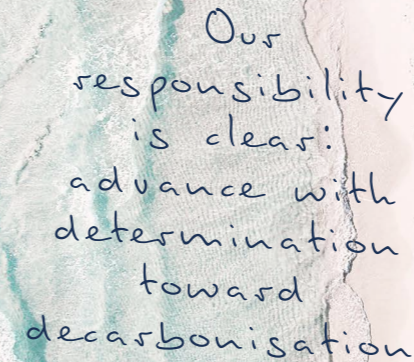 Our
responsibility
is clear:
advance with
determination
toward
decarbonisation